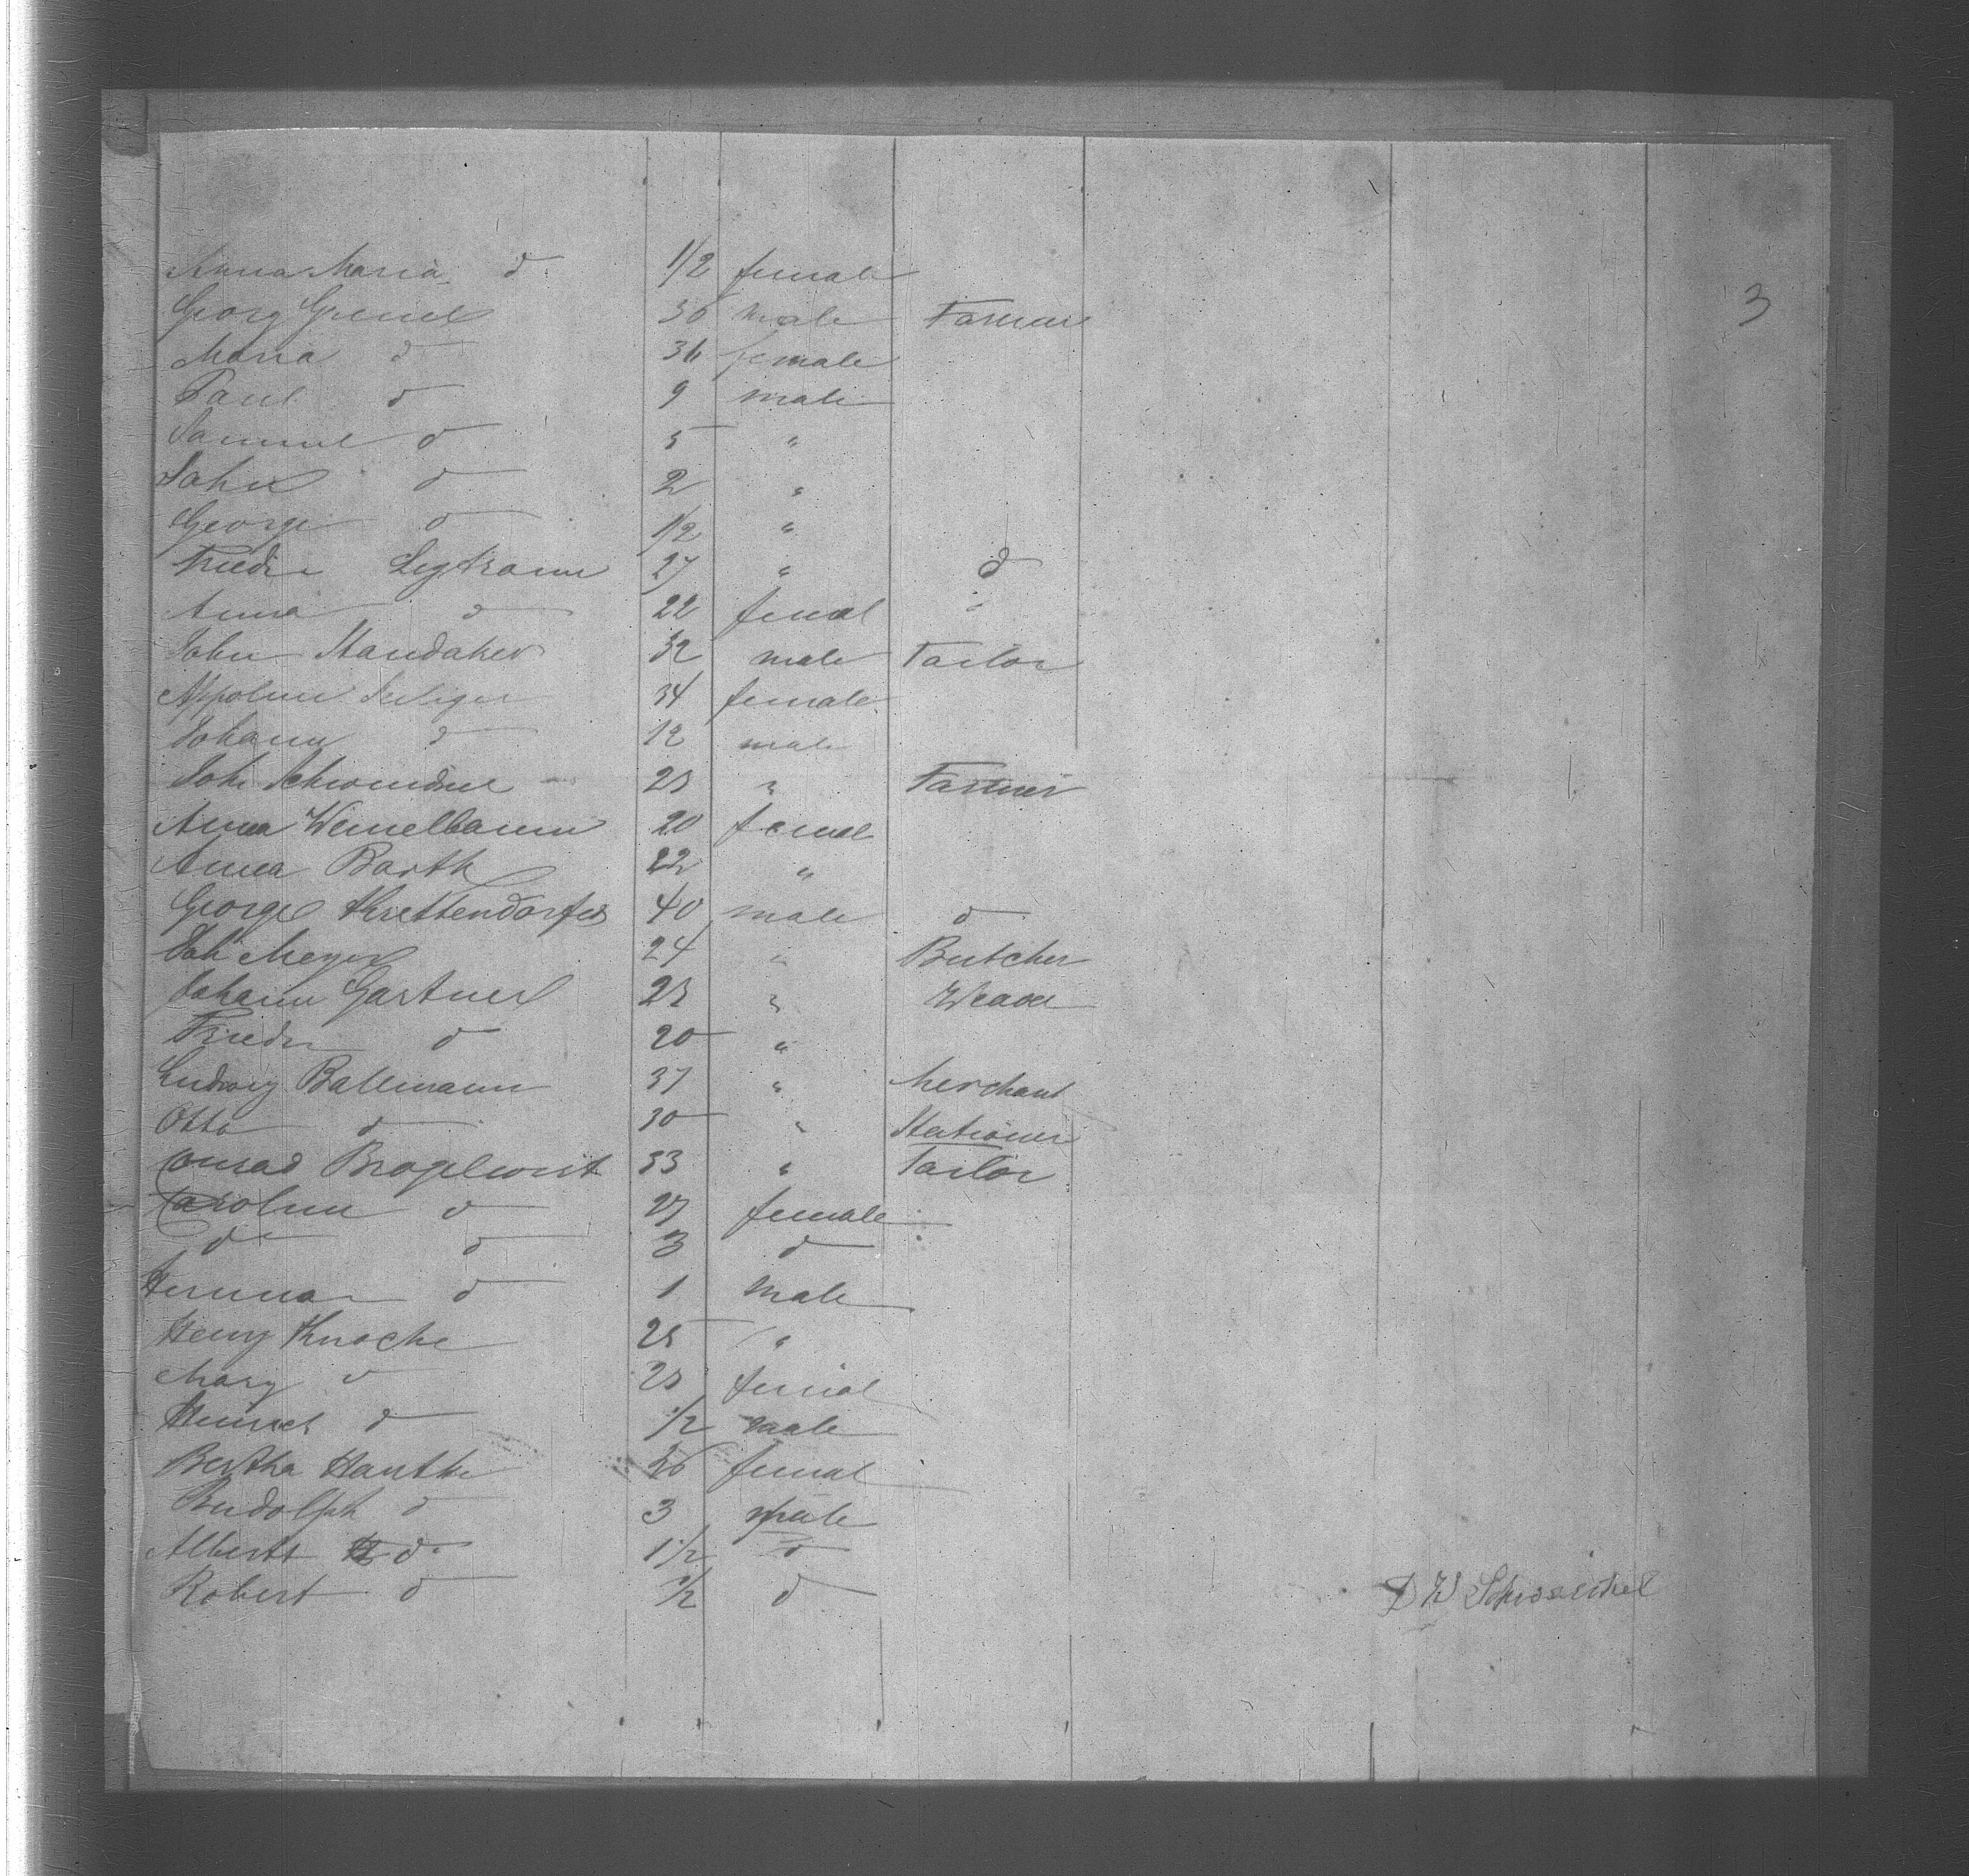 Anna Maria d 1/2 female
3
Georg 36 male Farmer
Maria d 36 female
Paul d 9 male
Samuel d 5 "
John d 2 "
George d 1/2 "
Friedr 27 " d
Anna d 22 femal "
John Standaker 32 male Tailor
34 female
Johann d 12 male
Joh Schwindel 25 " Farmer
Anna Weinelbaum 20 femal
Anna Barth 22 "
George Krettendorfer 40 male d
Joh Meyer 24 " Butcher
Johann Gartner 25 " Weaver
Friedr d 20 "
Ludwig Ballmann 37 " Merchant
Otto d 30 " Stationer
Conrad Brogelwirt 33 " Tailor
Carolin d 27 female
d d 3 d
Herman d 1 male
Henry Knoche 25 "
Mary d 25 femal
d 1/2 male
Bertha Hanthe 26 femal
Rudolph d 3 male
Albert d 1 1/2 d
Robert d 1/2 d
D W